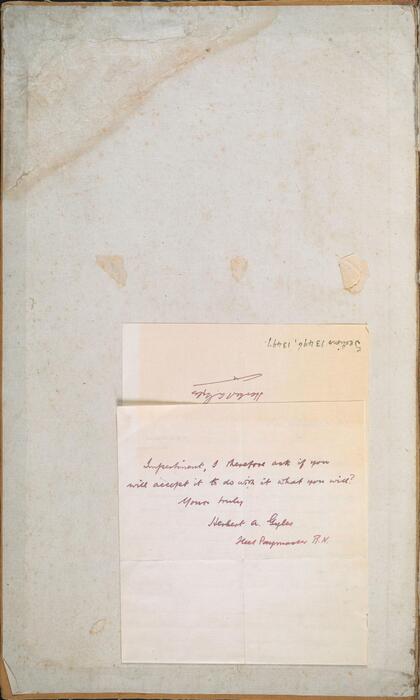 Section 13496, 13497.
Herbert A Gyles
Impertinent, I therefore ask if you
will accept it to do with it what you will?
Yours truly
Herbert A. Gyles
Fleet Paymaster R.N.